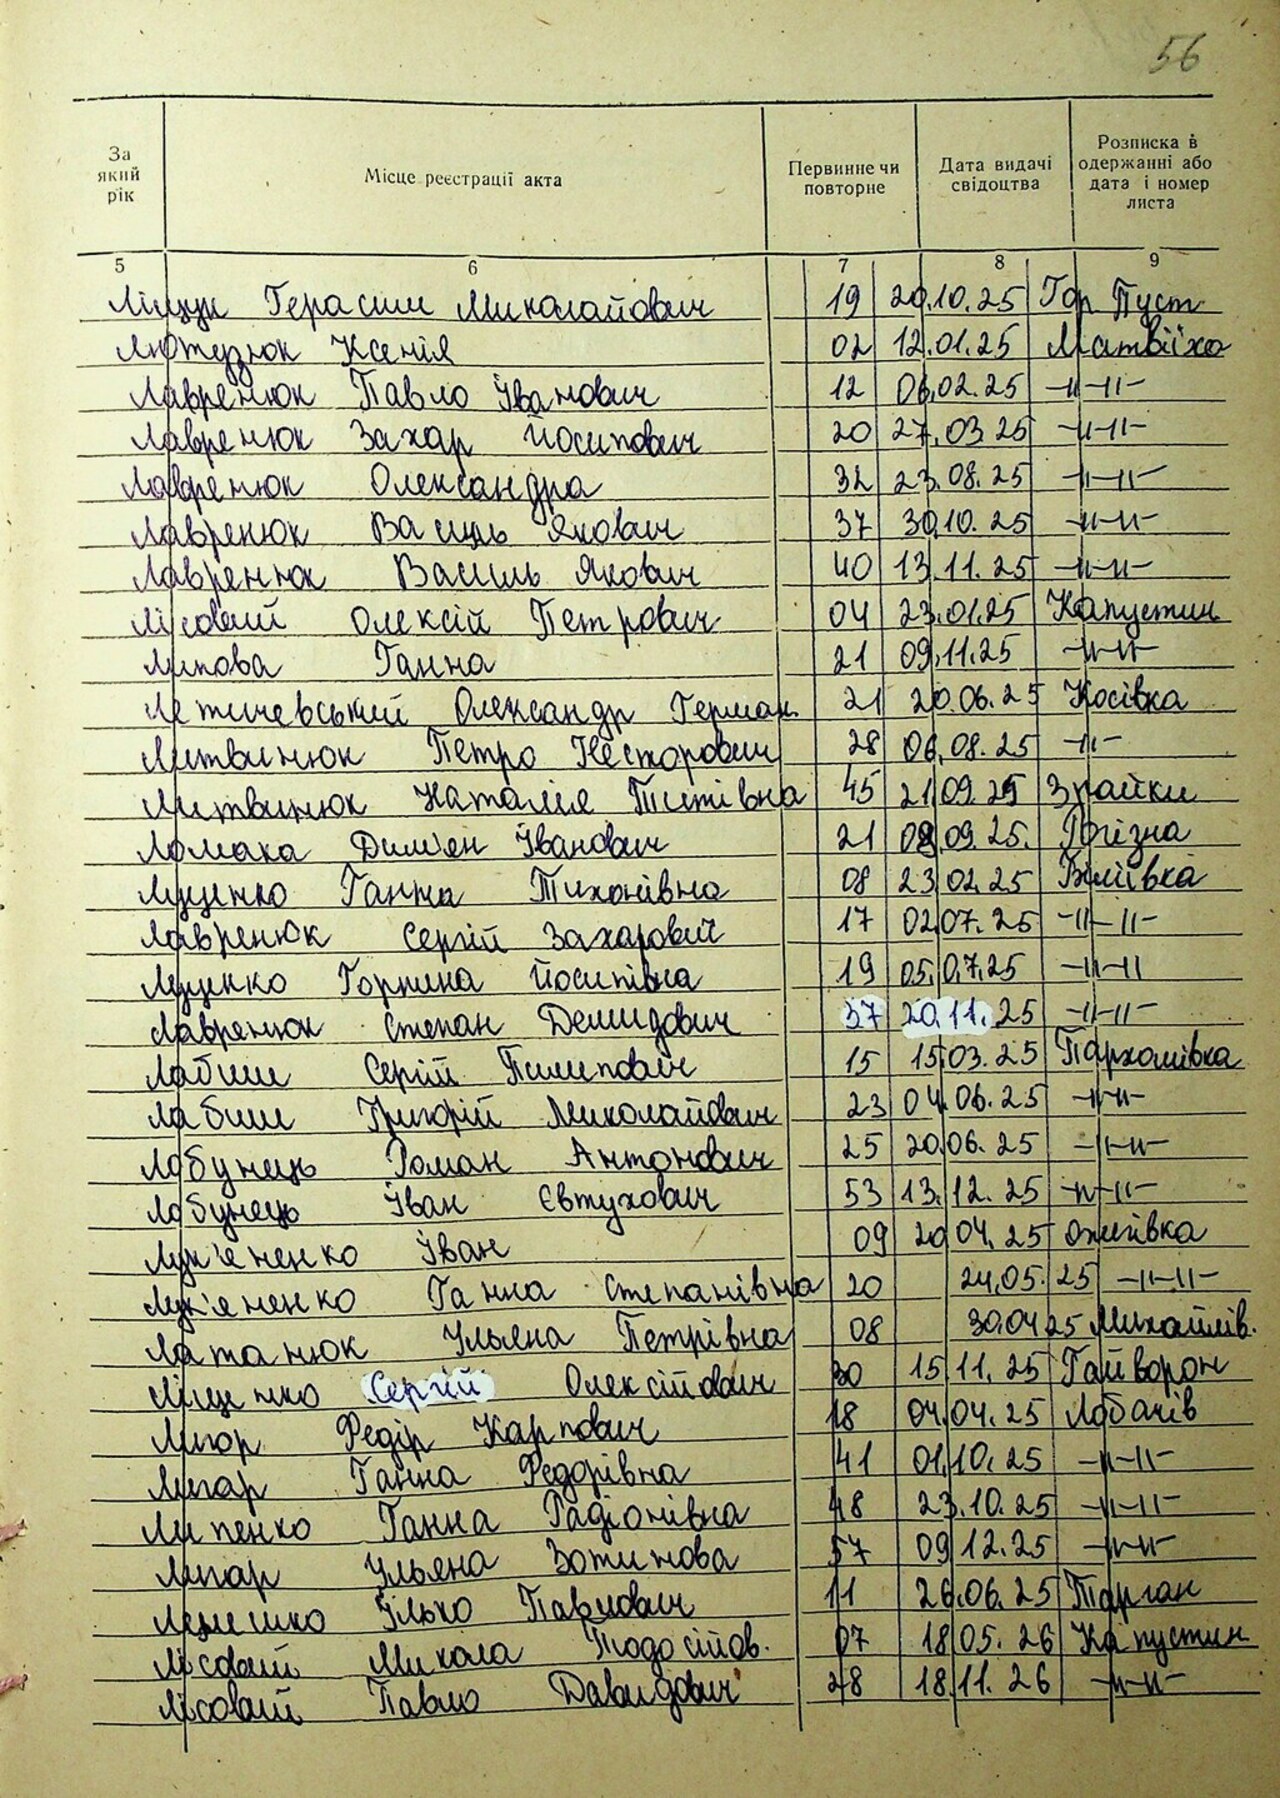 56
За який рік | Місце реєстрації акта | Первинне чи повторне | Дата видачі свідоцтва | Розписка в одержанні або дата і номер листа
5 6 7 8 9
Ліщук Герасим Миколайович 19 20.10.25 Гор Пуст
Лютзюк Ксенія 02 12.01.25 Матвіїха
Лавренюк Павло Іванович 12 06.02.25 -"-"-
Лавренюк Захар Йосипович 20 27.03 25 -"-"-
Лавренюк Олександра 32 23.08.25 -"-"-
Лавренюк Василь Якович 37 30.10.25 -"-"-
Лавренюк Василь Якович 40 13.11.25 -"-"-
Лісовий Олексій Петрович 04 23.01.25 Капустин
Липова Ганна 21 09.11.25 -"-"-
Летичевський Олександр Герман. 21 20.06.25 Косівка
Литвинюк Петро Несторович 28 06.08.25 -"-
Литвинюк Наталія Титівна 45 21.09.25 Зрайки
Ломака Дим'ян Іванович 21 08.09.25. Рогізна
Луценко Ганна Тихонівна 08 23 02.25 Біліївка
Лавренюк Сергій Захарович 17 02.07.25 -"-"-
Луценко Горпина Йосипівна 19 05.07.25 -"-"
Лавренюк Степан Демидович 37 20.11.25 -"-"-
Лабиш Сергій Пилипович 15 15.03.25 Пархомівка
Лабиш Григорій Миколайович 23 04.06.25 -"-"-
Лобунець Роман Антонович 25 20.06.25 -"-"-
Лобунець Іван Євтухович 53 13.12.25 -"-"-
Лук'яненко Іван 09 20 04.25 Ожегівка
Лук'яненко Ганна Степанівна 20 24.05.25 -"-"-
Латанюк Ульяна Петрівна 08 30.04 25 Михайлів.
Ліщенко Сергій Олексійович 30 15 11.25 Гайворон
Лигор Федір Карпович 18 04.04.25 Лобачів
Лигар Ганна Федорівна 41 01.10.25 -"-"-
Липенко Ганна Радіонівна 48 23.10.25 -"-"-
Лигар Ульяна Зотикова 57 09 12.25 -"-"-
Лемешко Ілько Павлович 11 26.06.25 Тарган
Лісовий Микола Тодосійов. 07 18.05.26 Капустин
Лісовий Павло Давидович 28 18.11.26 -"-"-